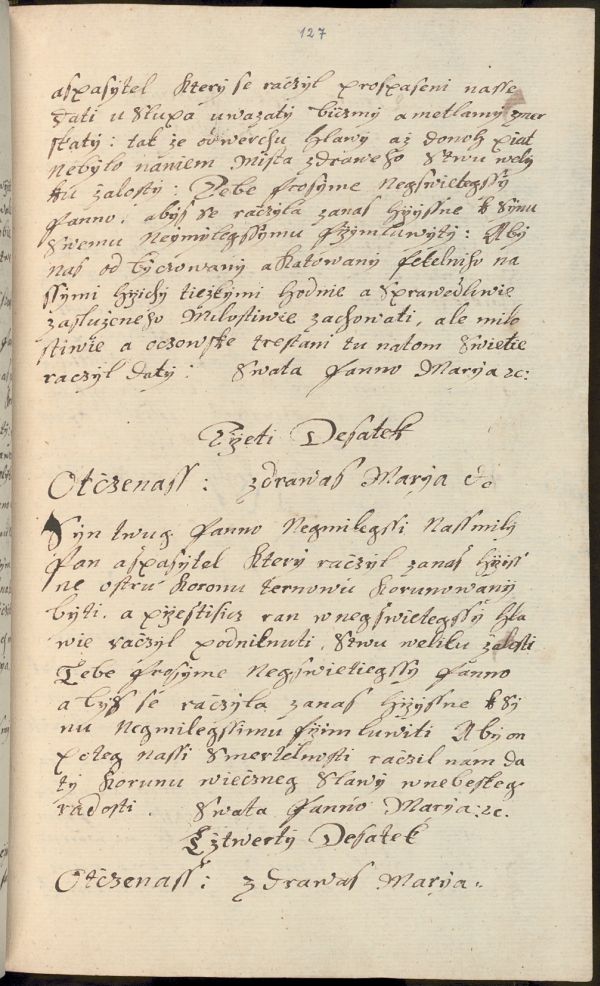 127
aspasytel Který se ráčzyl prospaseni nasse
dati u Slupa uwazaty biczmy a metlamy zmr
skaty: tak že odwerchu Hlawy až donoh piat
nebylo naniem mista zdraweho Stwu weli
ku žalosty: Tebe prosyme Negswietegssý
Panno, abyss se ráčzyla zanas Hrzyssne k Synu
Swemu Neymilegssymu przymluwyty: Aby
nas od byczowany a katowany pekelniho na
ssymi Hrzichy tiezkymi hodnie a Sprawedliwie
zasluženeho Milostiwie zachowati, ale milo
stiwie a oczowske trestani tu natom Swietie
raczyl daty: Swata Panno Marya ꝛc:
Trzeti Desatek
Otčzenass: zdrawas Marya &c
Syn twug Panno Negmilegssi Nassmily
Pan aspasytel Který ráčzyl zanas Hrzyss
ne ostrú Koronu ternowú Korunowaný
býti, a trzystisicz ran wnegswietegssý hla
wie ráčzyl podniknuti, Stwu weliku žalosti
Tebe prosyme Negswietiegssý Panno
abyss se ráčzyla zanas Hrzyssne k Sy
nu Negmilegssimu przimluwiti Aby on
poteg nassi Smertelnosti ráčzil nam da
ty Korunu wiečzneg Slawy wnebeskeg
radosti. Swata Panno Marya: ꝛc.
Cztwertý Desatek
Otčzenass: zdrawas Marya.